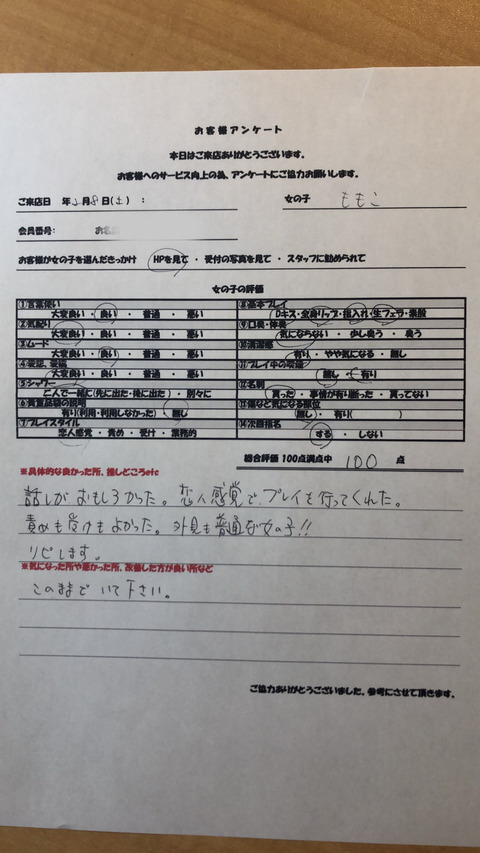 お客様アンケート
本日はご来店ありがとうございます。
お客様へのサービス向上の為、アンケートにご協力お願いします。
ご来店日 年2月8日(土) : 女の子 ももこ
会員番号: お名
お客様が女の子を選んだきっかけ HPを見て ・ 受付の写真を見て ・ スタッフに勧められて
女の子の評価
①言葉使い
大変良い ・ 良い ・ 普通 ・ 悪い
②気配り
大変良い ・ 良い ・ 普通 ・ 悪い
③ムード
大変良い ・ 良い ・ 普通 ・ 悪い
④
大変良い ・ 良い ・ 普通 ・ 悪い
⑤シャワー
二人で一緒に(先に出た・後に出た) ・ 別々に
⑥貴重品袋の説明
有り(利用・利用しなかった) ・ 無し
⑦プレイスタイル
恋人感覚 ・ 責め ・ 受け ・ 業務的
⑧基本プレイ
Dキス・全身リップ・指入れ・生フェラ・素股
⑨口臭・体臭
気にならない ・ 少し臭う ・ 臭う
⑩清潔感
有り ・ やや気になる ・ 無し
⑪プレイ中の喫煙
無し ・ 有り
⑫名刺
貰った ・ 事情が有り断った ・ 貰ってない
⑬傷など気になる部位
無し ・ 有り( )
⑭次回指名
する ・ しない
総合評価 100点満点中 100 点
※具体的な良かった所、推しどころetc
話しがおもしろかった。恋人感覚で、プレイを行ってくれた。
責めも受けもよかった。外見も普通な女の子!!
リピします。
※気になった所や悪かった所、改善した方が良い所など
このままでいて下さい。
ご協力ありがとうございました。参考にさせて頂きます。